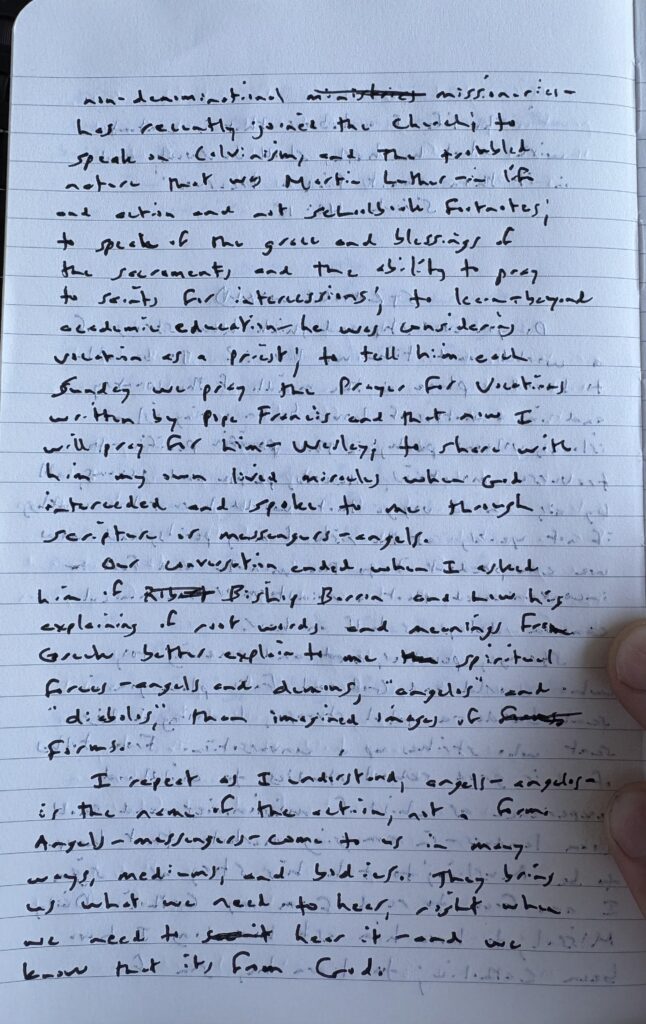 non-denominational ministries missionaries-
has recently joined the church; to
speak on Calvinism, and the troubled
nature that was Martin Luther-in life
and action and not schoolbook footnotes;
to speak of the grace and blessings of
the sacraments and the ability to pray
to saints for intercessions; to learn-beyond
academic education-he was considering
vocation as a priest; to tell him each
Sunday we pray the Prayer for Vocations
written by Pope Francis and that now I
will pray for him-Wesley; to share with
him my own lived miracles when God
interceded and spoke to me through
scripture or messengers-angels.
Our conversation ended when I asked
him of Bishop Barron and how his
explaining of root words and meanings from
Greek better explain to me the spiritual
forces-angels and demons, "angelos" and
"diabolos," than imagined images of
forms.
I repeat as I understand, angels-angelos-
is the name of the action, not a form.
Angels-messengers-come to us in many
ways, mediums, and bodies. They bring
us what we need to hear, right when
we need to hear it-and we
know that its from God.